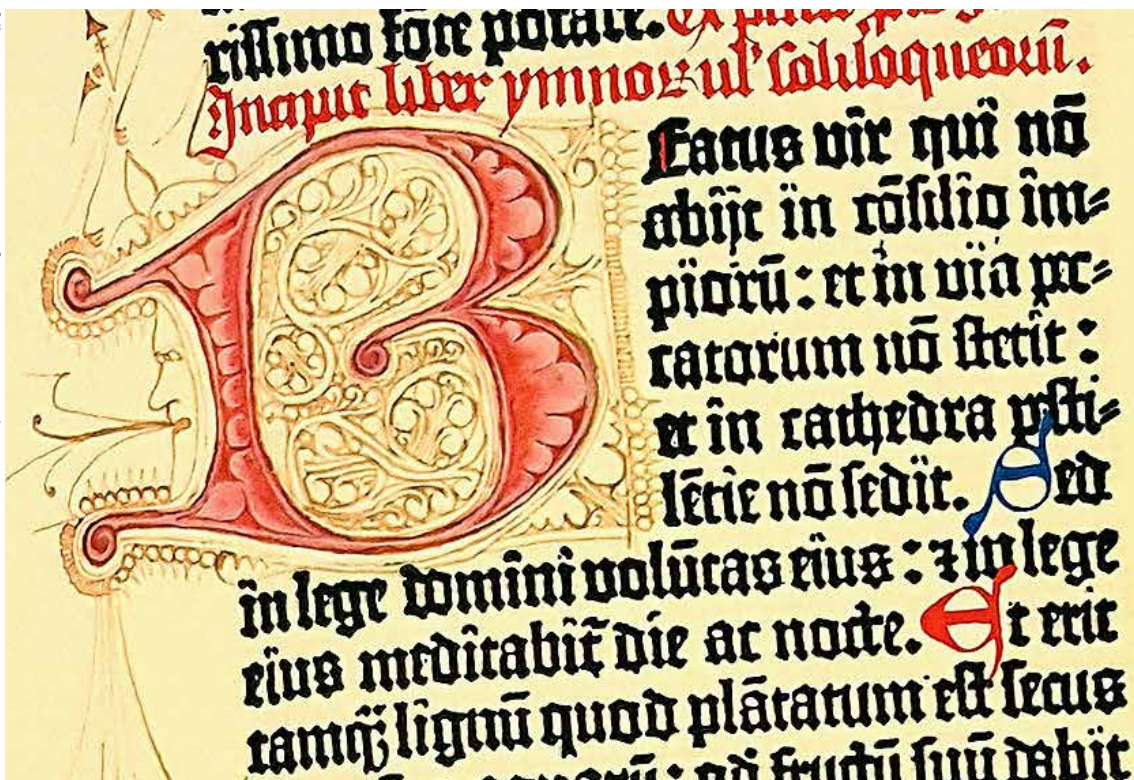 rissimo fōte potare.
Incipit liber ymnoꝝ ul' soliloqueorū.
Beatus vir qui nō
abijt in cōsilio im=
piorū: et in via pec=
catorum nō stetit:
et in cathedra pesti=
lētie nō sedit. Sed
in lege domini volūtas eius: ⁊ in lege
eius meditabit̄ die ac nocte. Et erit
tamqȝ lignū quod plātatum est secus
fructū suū dabit